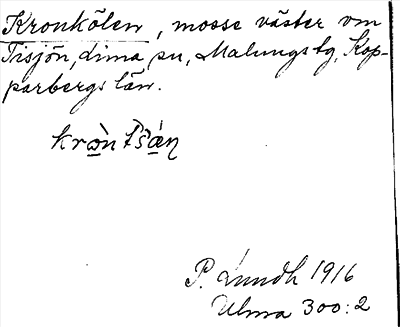 Kronkölen, mosse väster om
Tisjön, Lima sn, Malungs tg, Kop-
parbergs län.
P. Lundh 1916
Ulma 300:2